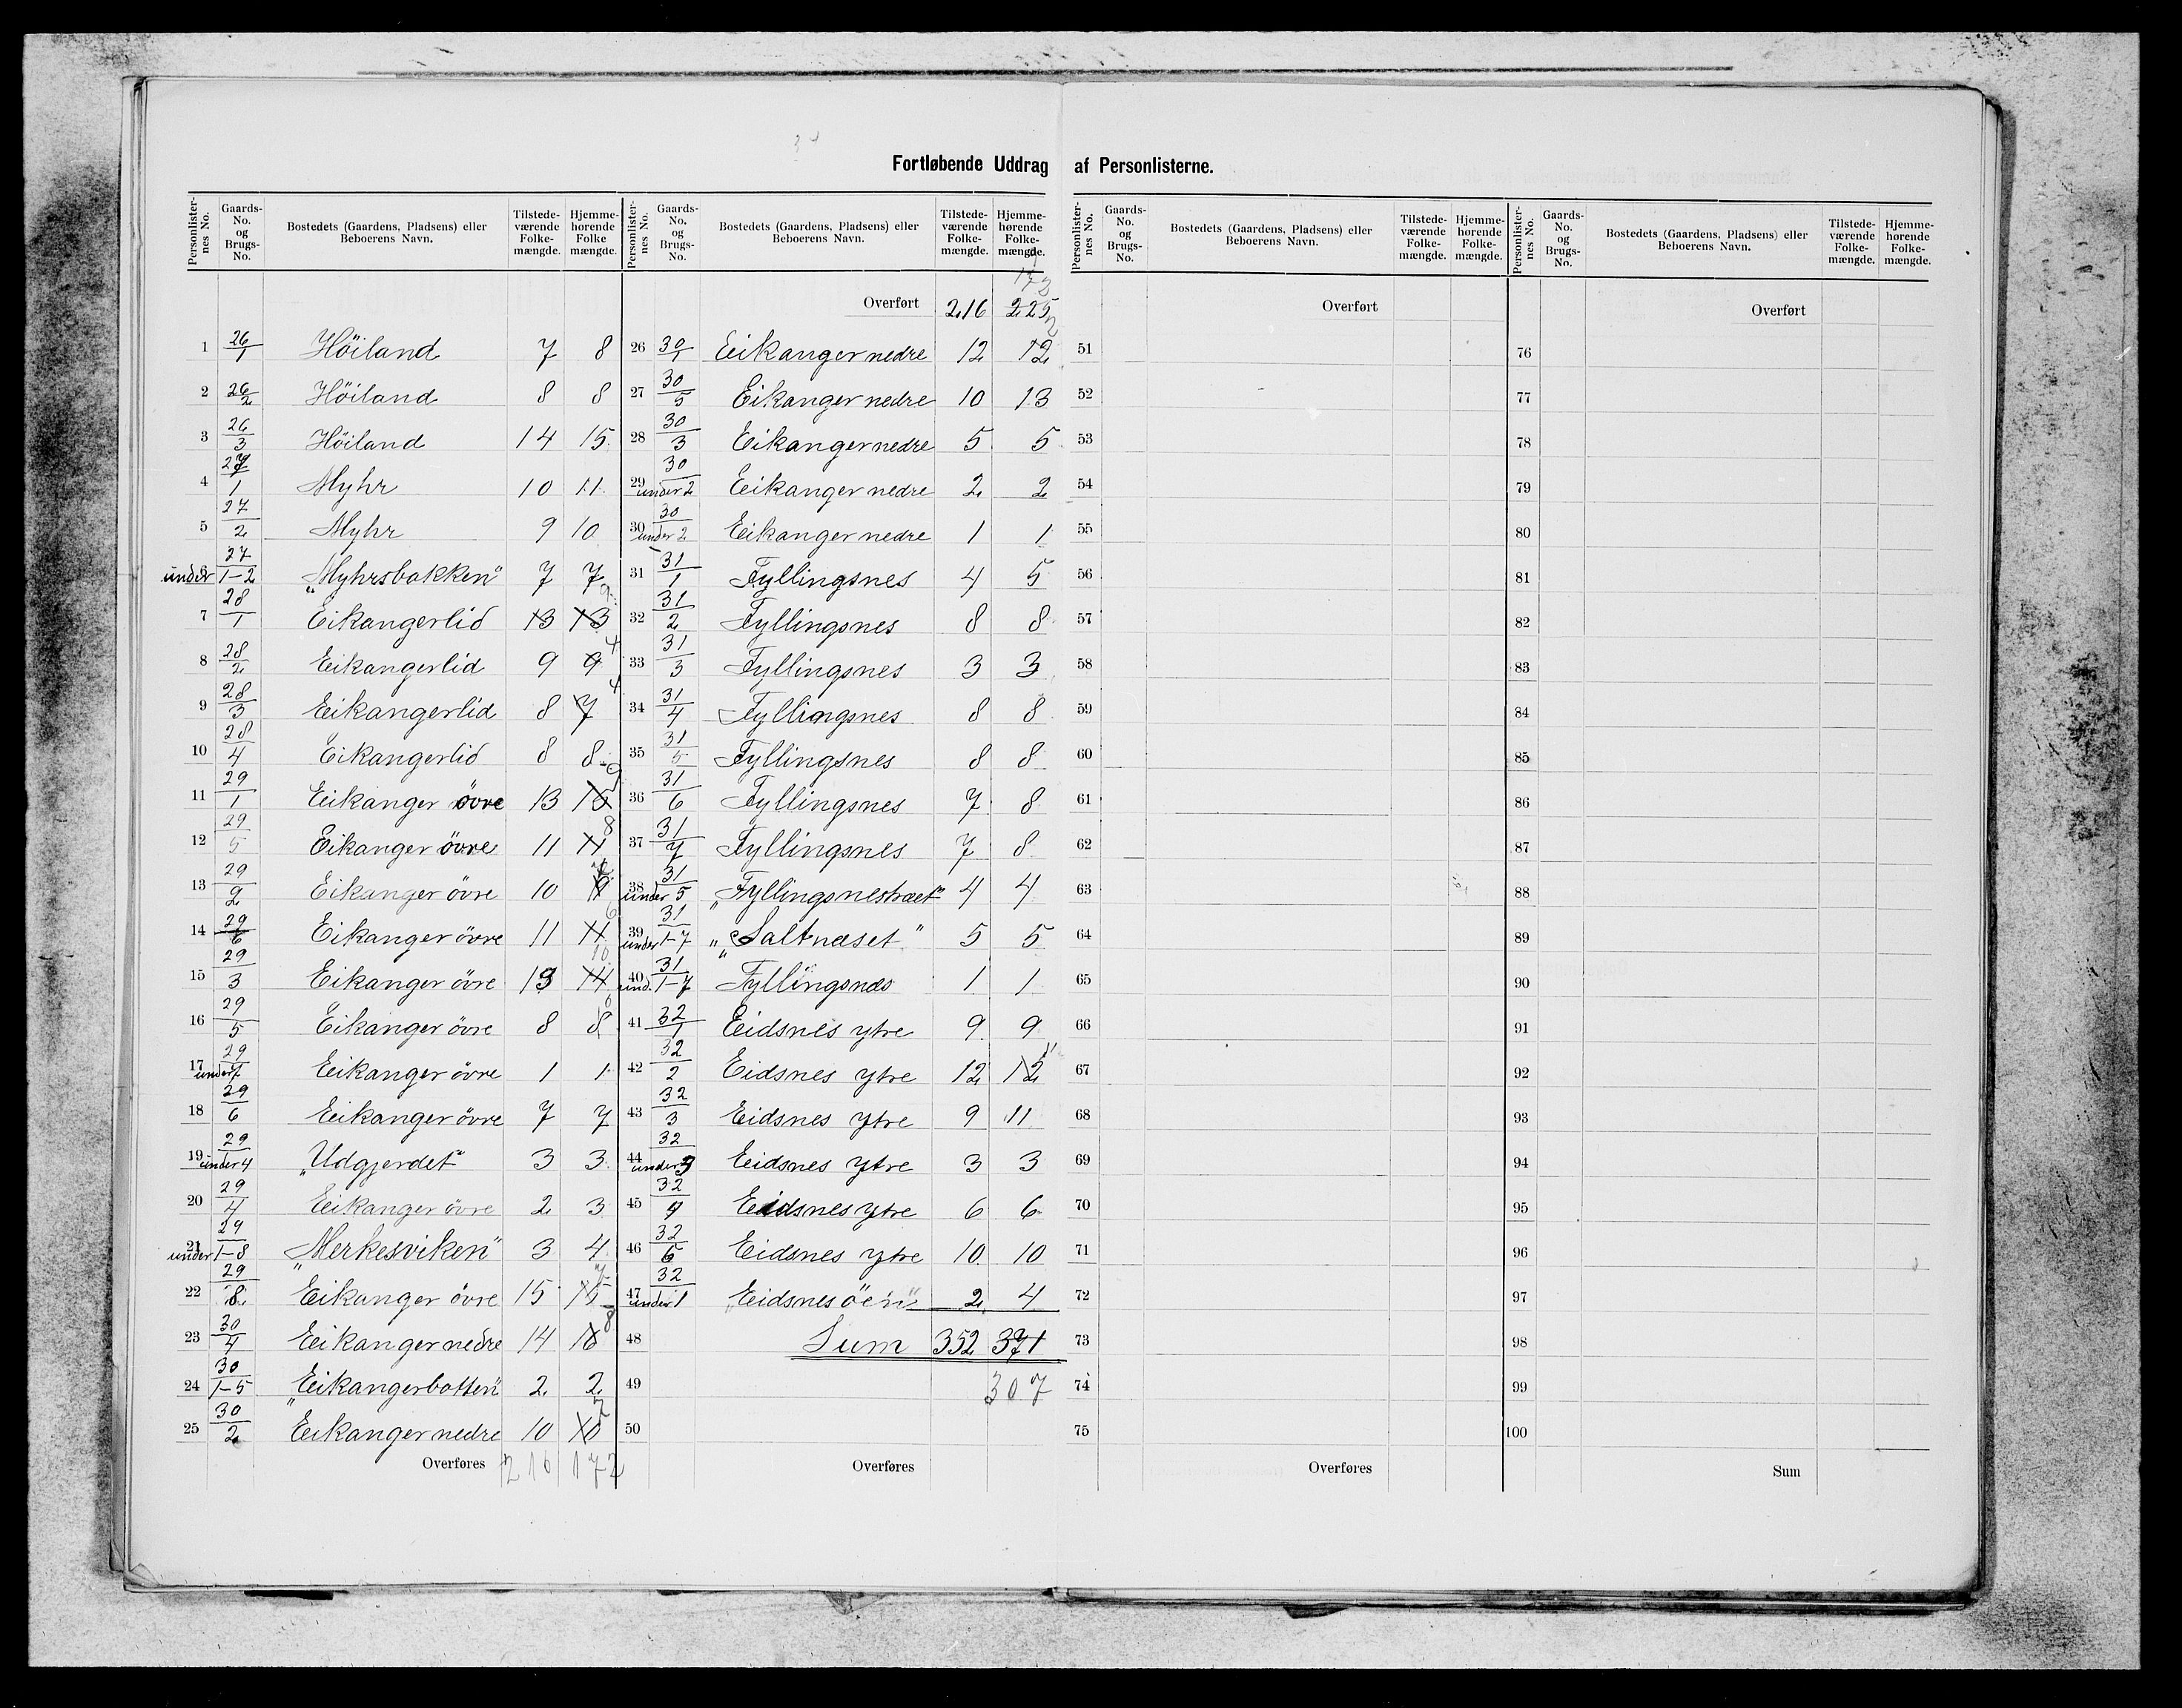 Fortløbende Uddrag af Personlisterne.
Personlister-nes No. | Gaards-No. og Brugs-No. | Bostedets (Gaardens, Pladsens) eller Beboerens Navn. | Tilstede-værende Folke-mængde. | Hjemme-hørende Folke mængde.
1 26/1 Höiland 7 8
2 26/2 Höiland 8 8
3 26/3 Höiland 14 15
4 27/1 Myhr 10 11
5 27/2 Myhr 9 10
6 under 27/1-2 "Myhrsbakken" 7 7
7 28/1 Eikangerlid 13 13 9
8 28/2 Eikangerlid 9 9 4
9 28/3 Eikangerlid 8 7 4
10 28/4 Eikangerlid 8 8
11 29/1 Eikanger övre 13 15 9
12 29/5 Eikanger övre 11 11 8
13 29/2 Eikanger övre 10
14 29/6 Eikanger övre 11 11 6
15 29/3 Eikanger övre 13 14 10
16 29/5 Eikanger övre 8 8
17 under 29/1 Eikanger övre 1 1
18 29/6 Eikanger övre 7 7
19 under 29/4 "Udgjerdet" 3 3
20 29/4 Eikanger övre 2 3
21 under 29/1-8 "Merkesviken" 3 4
22 29/8 Eikanger övre 15 15 7
23 30/4 Eikanger nedre 14 16 8
24 30/1-5 "Eikangerbotten" 2 2
25 30/2 Eikanger nedre 10 10 7
Overføres 216 172
Personlister-nes No. | Gaards-No. og Brugs-No. | Bostedets (Gaardens, Pladsens) eller Beboerens Navn. | Tilstede-værende Folke-mængde. | Hjemme-hørende Folke-mængde.
Overført 216 225
26 30/1 Eikanger nedre 12 12
27 30/5 Eikanger nedre 10 13
28 30/3 Eikanger nedre 5 5
29 30/under 2 Eikanger nedre 2 2
30 30/under 2 Eikanger nedre 1 1
31 31/1 Fyllingsnes 4 5
32 31/2 Fyllingsnes 8 8
33 31/3 Fyllingsnes 3 3
34 31/4 Fyllingsnes 8 8
35 31/5 Fyllingsnes 8 8
36 31/6 Fyllingsnes 7 8
37 31/7 Fyllingsnes 7 8
38 31/under 5 "Fyllingsnestræet" 4 4
39 31/under 1-7 "Saltnæset" 5 5
40 31/und. 1-7 Fyllingsnæs 1 1
41 32/1 Eidsnes ytre 9 9
42 32/2 Eidsnes ytre 12 12 11
43 32/3 Eidsnes ytre 9 11
44 32/under 3 Eidsnes ytre 3 3
45 32/4 Eidsnes ytre 6 6
46 32/6 Eidsnes ytre 10 10
47 32/under 1 "Eidsnesöen" 2 4
48 Sum 352 371
49 307
50
Overføres
Personlister-nes No. | Gaards-No. og Brugs-No. | Bostedets (Gaardens, Pladsens) eller Beboerens Navn. | Tilstede-værende Folke-mængde. | Hjemme-hørende Folke-mængde.
Overført
51
52
53
54
55
56
57
58
59
60
61
62
63
64
65
66
67
68
69
70
71
72
73
74
75
Overføres
Personlister-nes No. | Gaards-No. og Brugs-No. | Bostedets (Gaardens, Pladsens) eller Beboerens Navn. | Tilstede-værende Folke-mængde. | Hjemme-hørende Folke-mængde.
Overført
76
77
78
79
80
81
82
83
84
85
86
87
88
89
90
91
92
93
94
95
96
97
98
99
100
Sum